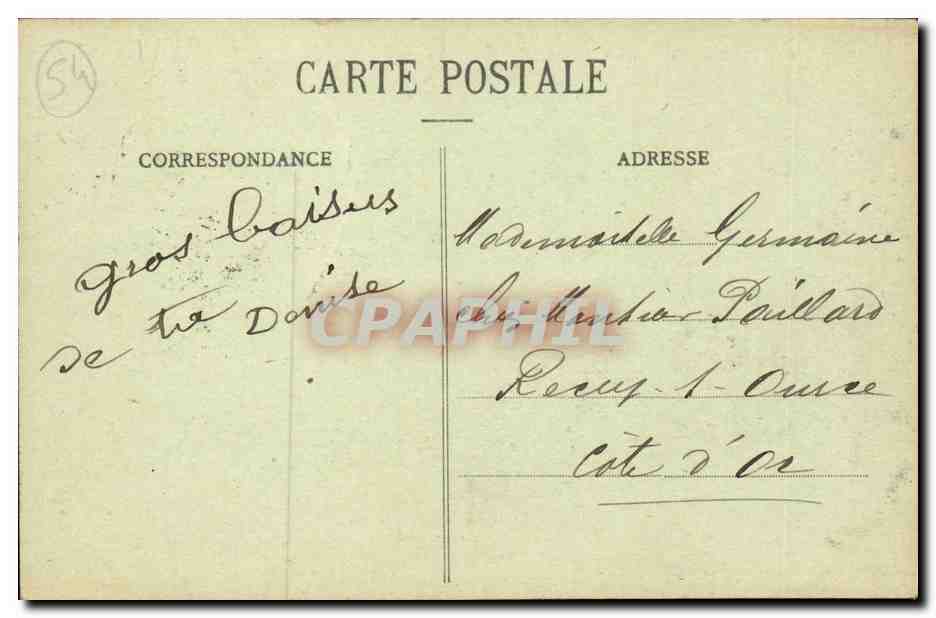 54
CARTE POSTALE
CORRESPONDANCE
gros baisers
de ta Denise
ADRESSE
Mademoiselle Germaine
chez Monsieur Paillard
Recey-s-Ource
Côte d'Or
CPAPHIL